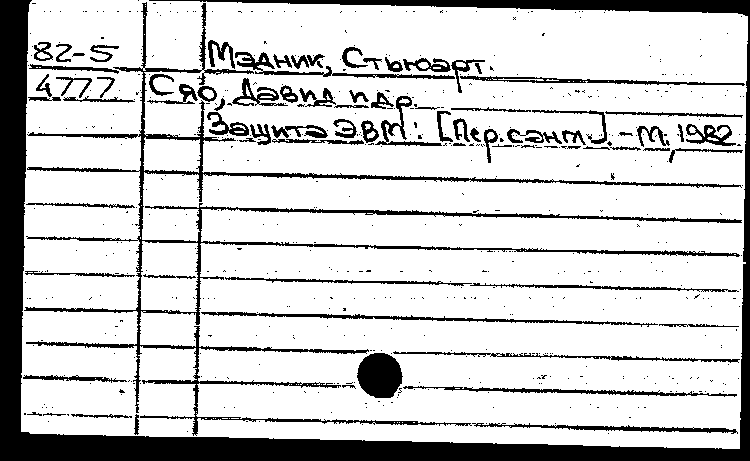 82-5 Мэдник, Стьюарт.
4777 Сяо, Дэвид и др.
Защита ЭВМ: [Пер. с англ.]. - М., 1982